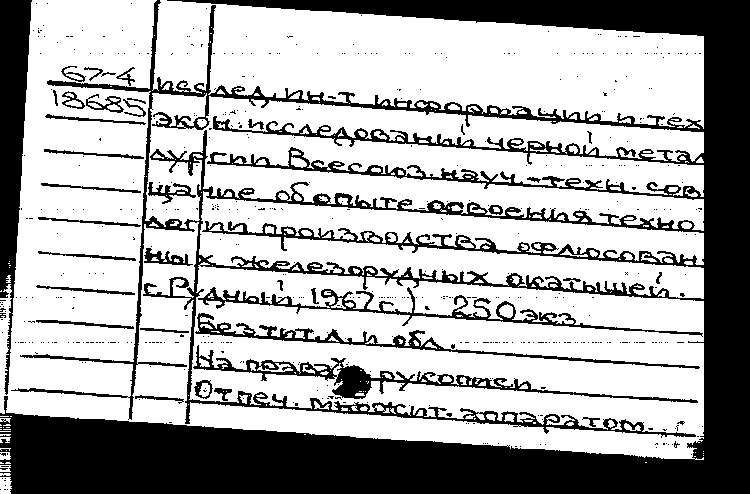 67-4
18685
исслед. ин-т информации и тех
экон. исследований черной метал
лургии. Всесоюз. науч.-техн. сов
щание об опыте освоения техно
логии производства офлюсован
ных железорудных окатышей.
г. Рудный, 1967 г.). 250 экз.
Без тит. л. и обл.
На правах рукописи.
Отпеч. множит. аппаратом.